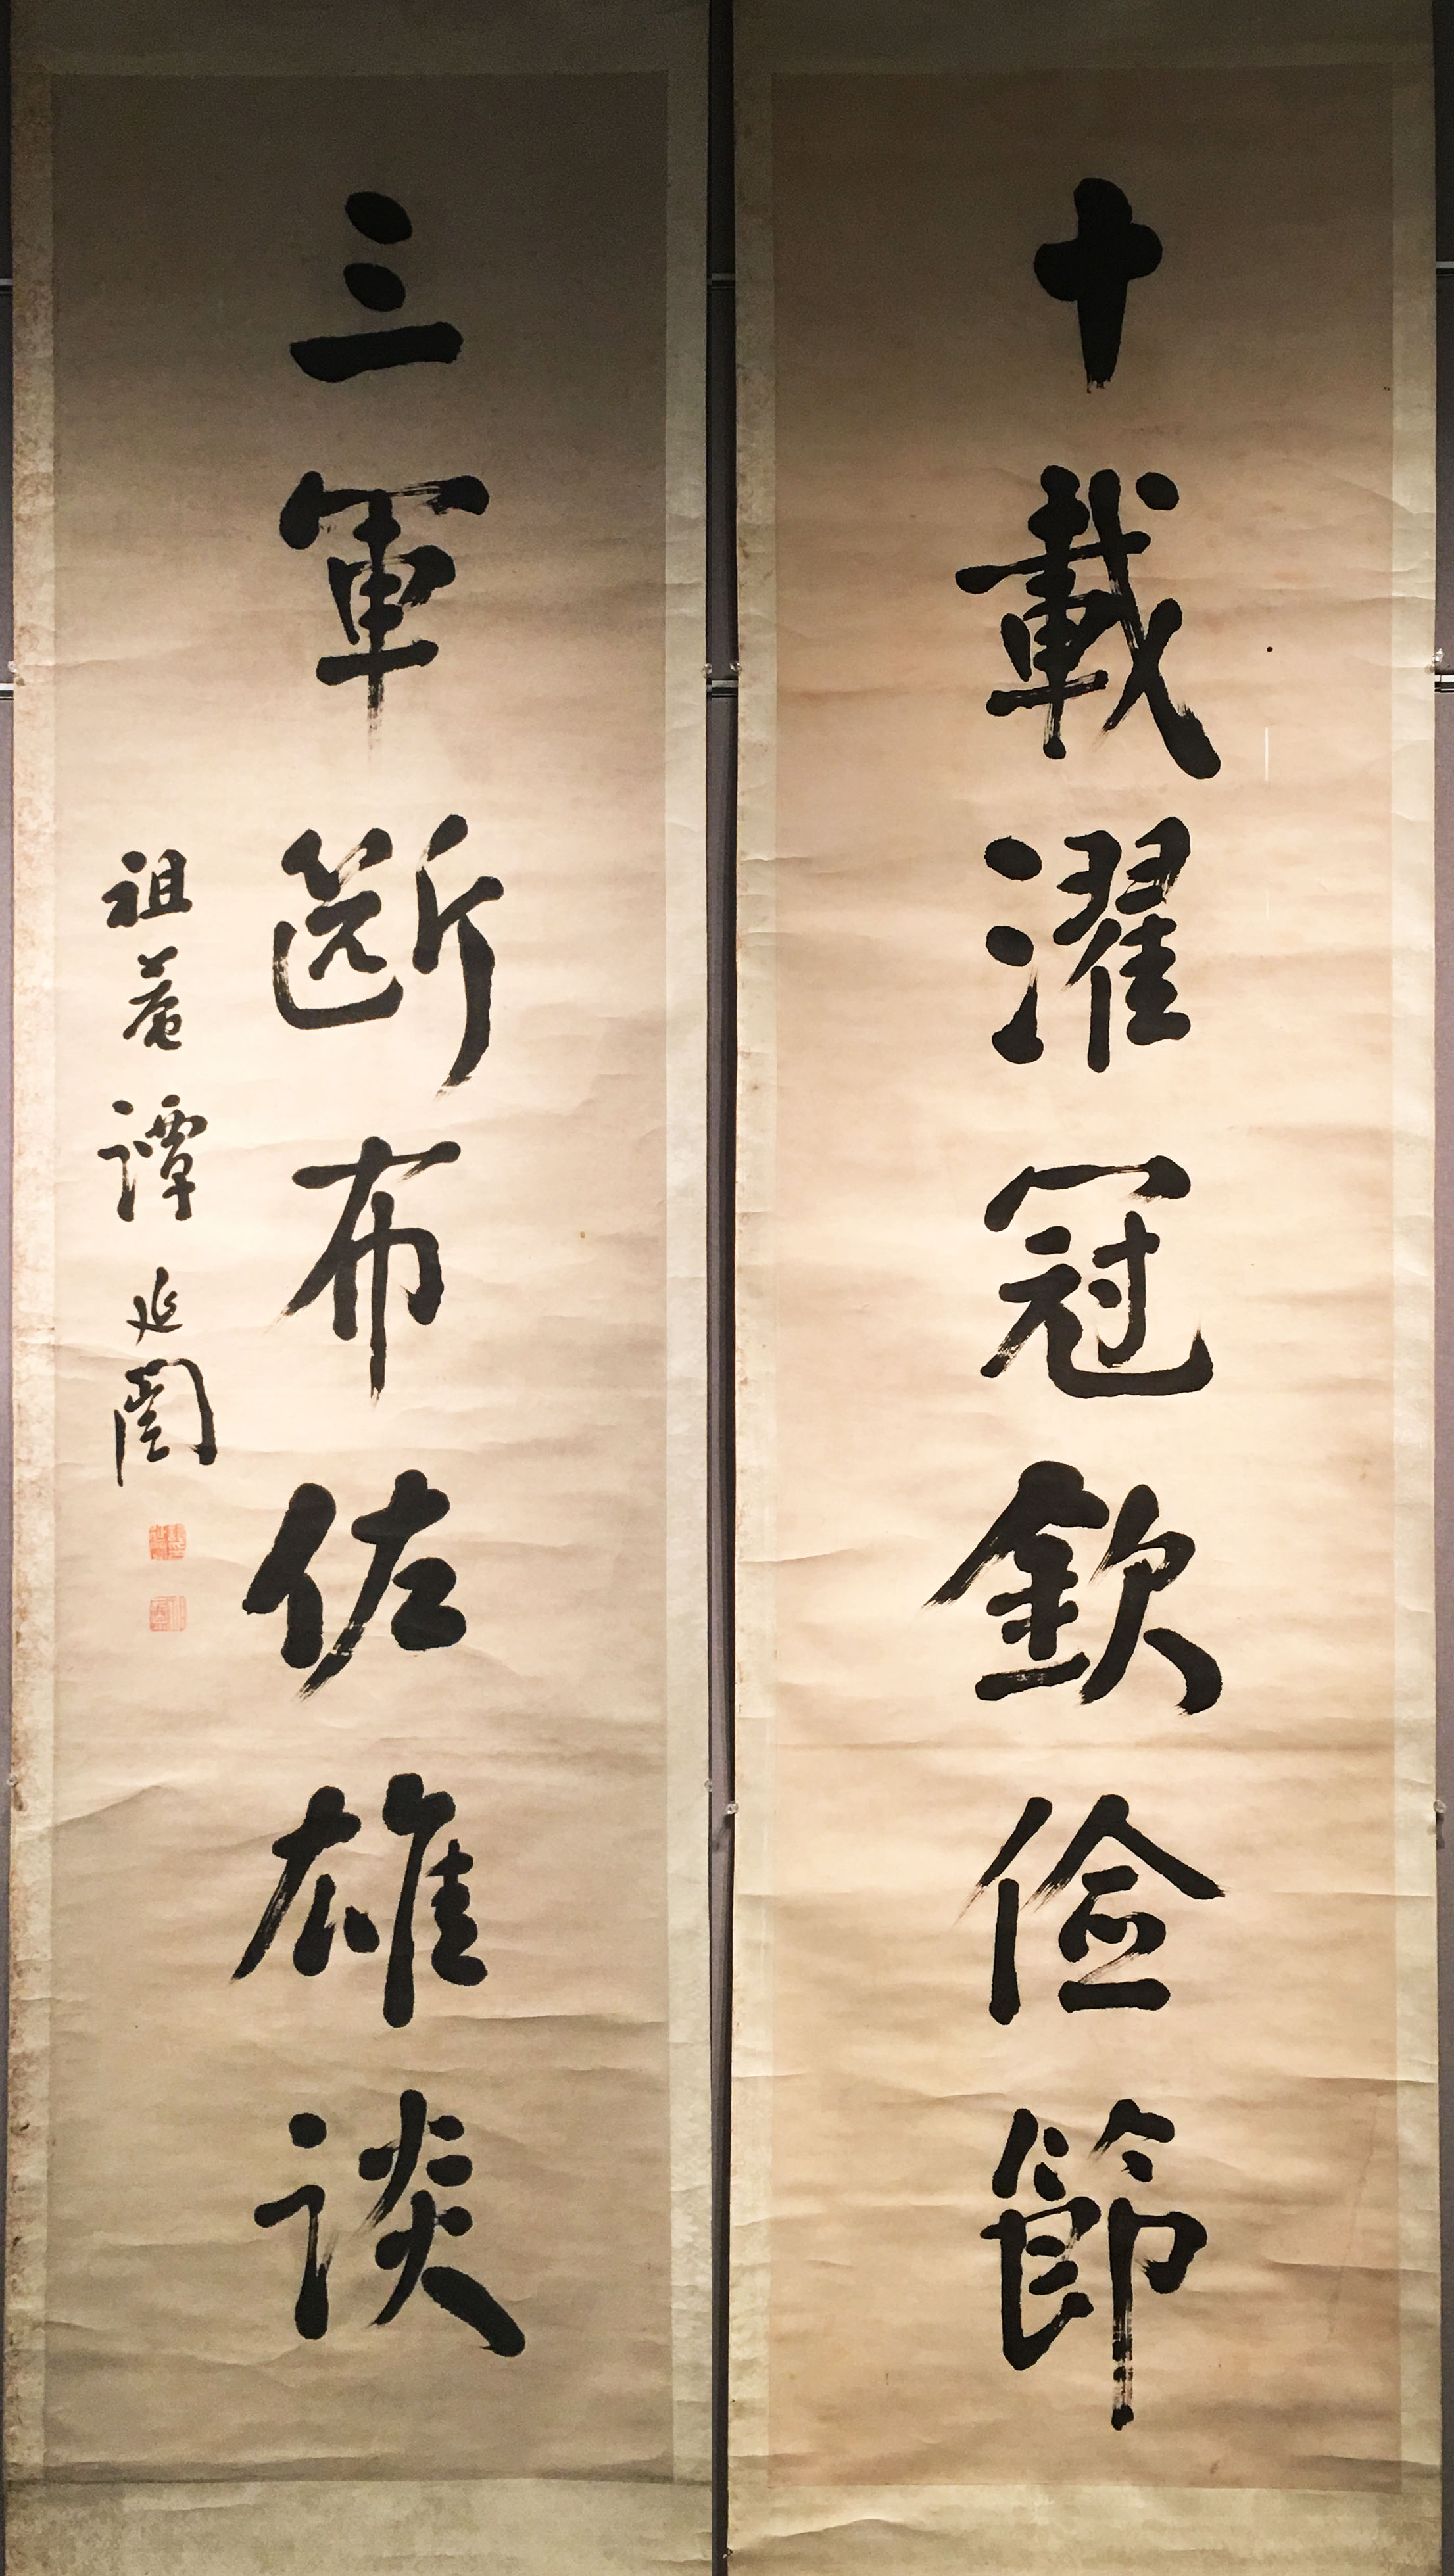 十載濯冠欽儉節
三軍斷布佐雄談
祖菴譚延闓